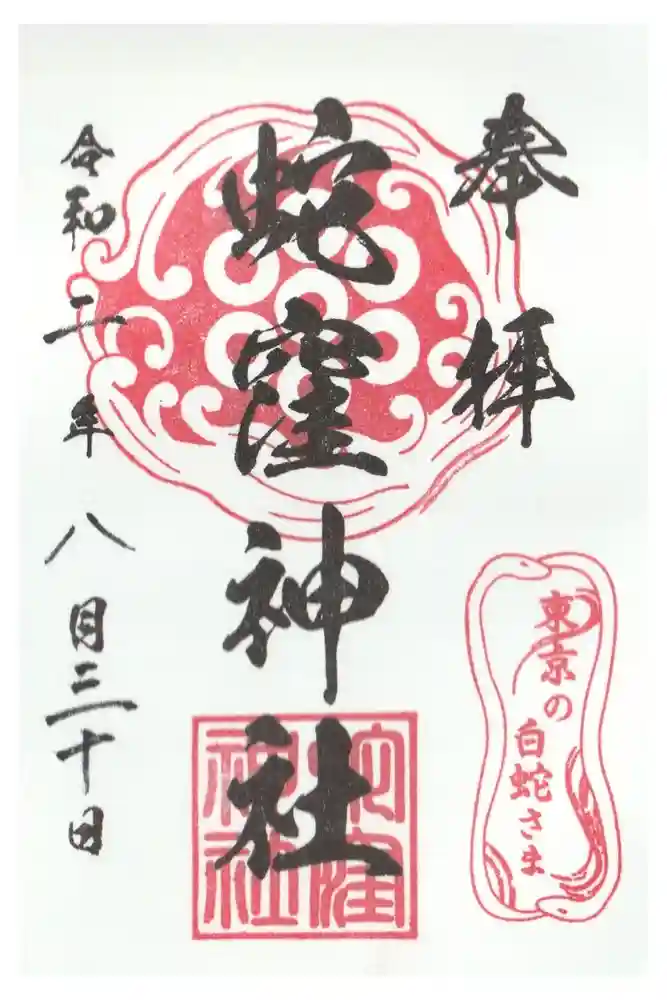 奉拝
蛇窪神社
令和二年八月三十日
東京の
白蛇さま
蛇窪
神社